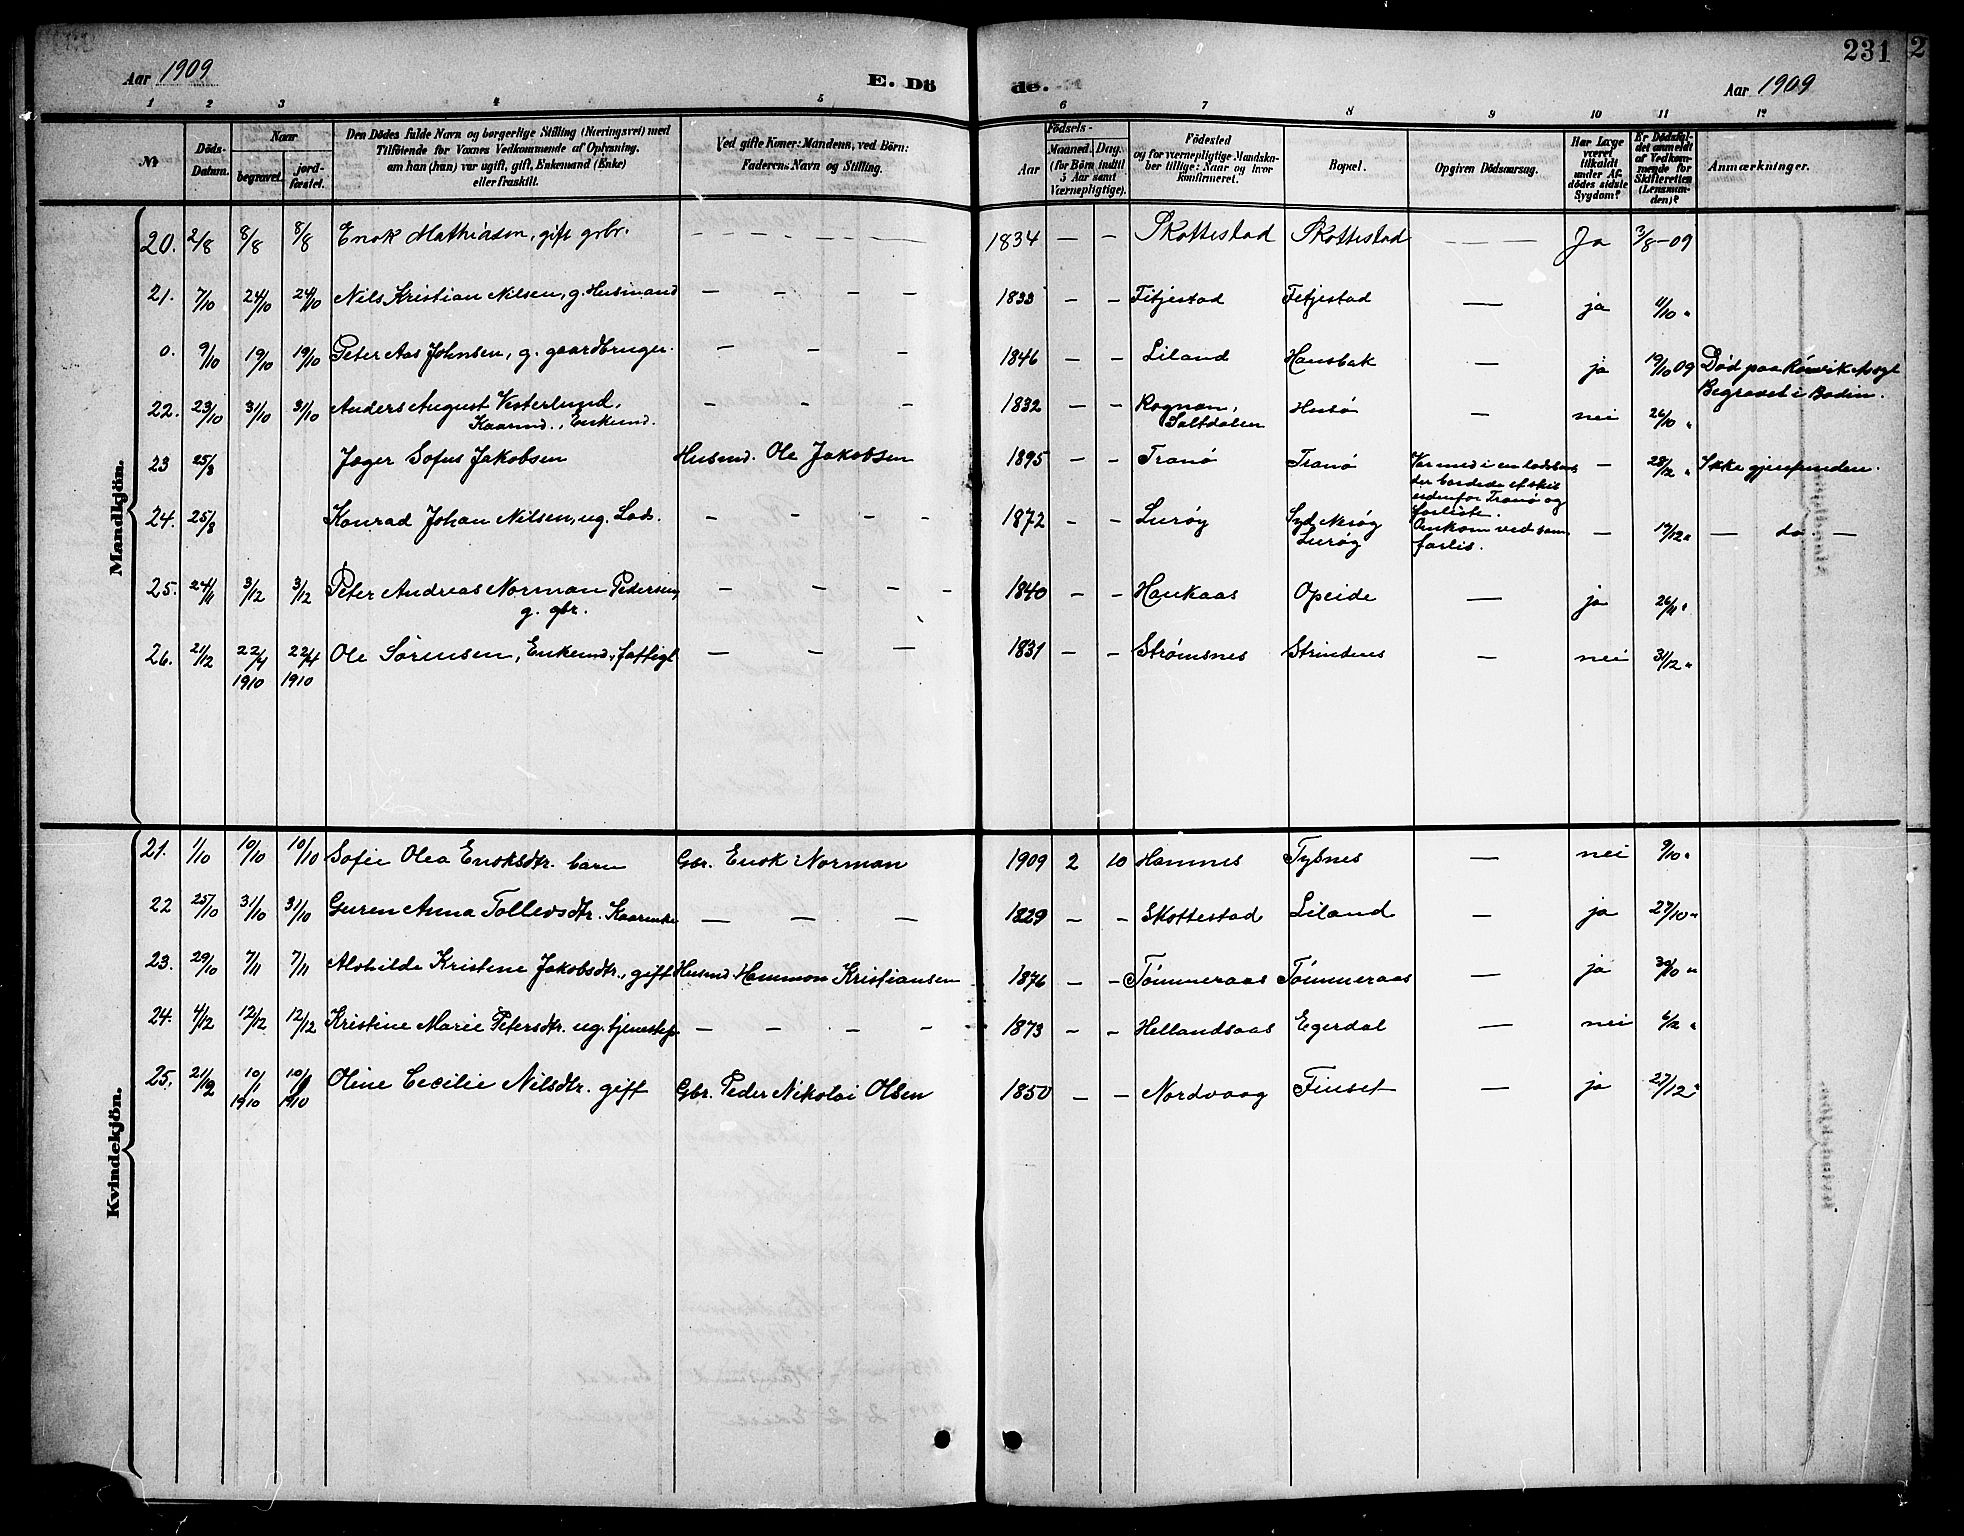 231
Aar 1909 E. Dö de. Aar 1909
1 2 3 4 5 6 7 8 9 10 11 12
No. Döds-Datum. Naar begravet. jord-fæstet. Den Dödes fulde Navn og borgerlige Stilling (Næringsvei) med Tilføiende for Voxnes Vedkommende af Oplysning, om han (hun) var ugift, gift, Enkemand (Enke) eller fraskilt. Ved gifte Koner: Mandens, ved Börn: Faderens Navn og Stilling. Födsels- Aar Maaned. Dag. (for Börn indtil 5 Aar samt Værnepligtige). Födested og for værnepligtige Mandskaber tillige: Naar og hvor konfirmeret. Bopæl. Opgiven Dödsaarsag. Har Læge været tilkaldt under Afdödes sidste Sygdom? Er Dödsfaldet anmeldt af Vedkommende for Skifteretten (Lensmanden)? Anmærkninger.
Mandkjön.
20. 2/8 8/8 8/8 Enok Mathiasen, gift grbr. — 1834 — — Skottestad Skottestad — Ja 3/8-09
21. 7/10 24/10 24/10 Nils Kristian Nilsen, g. Husmand — 1833 — — Fitjestad Fetjestad — ja 11/10 "
0. 9/10 19/10 19/10 Peter Aas Johnsen, g. gaardbruger. — 1846 — — Liland Hansbak — ja 19/10 09 Død paa Rønvik Asyl
Begravet i Bodin.
22. 23/10 31/10 31/10 Anders August Vesterlund, — 1832 — — Rognan, Husø — nei 26/10 "
Kaarmd., Enkemd. Saltdalen
23 25/8 Jæger Sofus Jakobsen Husmd. Ole Jakobsen 1895 — — Tranø Tranø Var med i en lodsbaad — 28/12 " Ikke gjenfunden.
der bordede et skib
udenfor Tranø og
forliste.
24. 25/8 Konrad Johan Nilsen, ug. Lods. — 1872 — — Lurøy Syd Nesøy Omkom ved sam — 17/12 " — do —
Lurøy forlis.
25. 24/11 3/12 3/12 Peter Andreas Norman Pedersen, — 1840 — — Haukaas Opeide — ja 26/11 "
g. gbr.
26. 21/12 22/4 22/4 Ole Sørensen, Enkemd., fattigl — 1831 — — Strømsnes Strindnes — nei 31/12 "
1910 1910
Kvindekjön.
21. 1/10 10/10 10/10 Sofie Olea Enoksdtr. barn Gbr. Enok Norman 1909 2 10 Hamnes Tysnes — nei 9/10 "
22 25/10 31/10 31/10 Guren Anna Tollevsdtr. Kaarenke — 1829 — — Skottestad Liland — ja 27/10 "
23. 29/10 7/11 7/11 Alvhilde Kristine Jakobsdtr., gift Husmd. Hammon Kristiansen 1876 — — Tømmeraas Tømmeraas — ja 30/10 "
24. 4/12 12/12 12/12 Kristine Marie Petersdtr. ug. tjenestep — 1873 — — Hellandsaas Egerdal — nei 6/12 "
25. 21/12 10/1 10/1 Oline Cecilie Nilsdtr. gift Gbr. Peder Nikolai Olsen 1850 — — Nordvaag Finset — ja 27/12 "
1910 1910